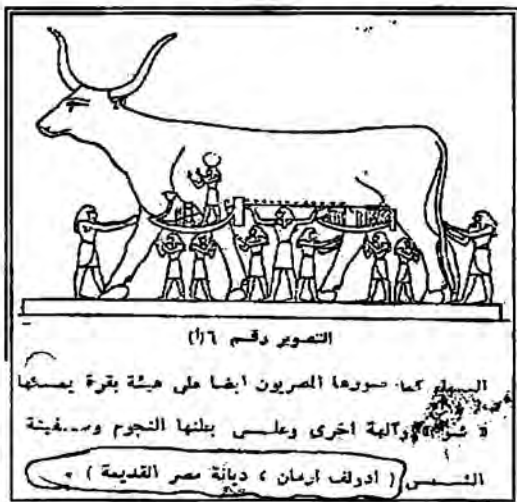 التصوير رقم ٦(١)
كما صورها المصريون ايضا على هيئة بقرة يمسكها
وآلهة اخرى وعلى بطنها النجوم وسفينة
الشمس (ادولف ارمان ، ديانة مصر القديمة) .